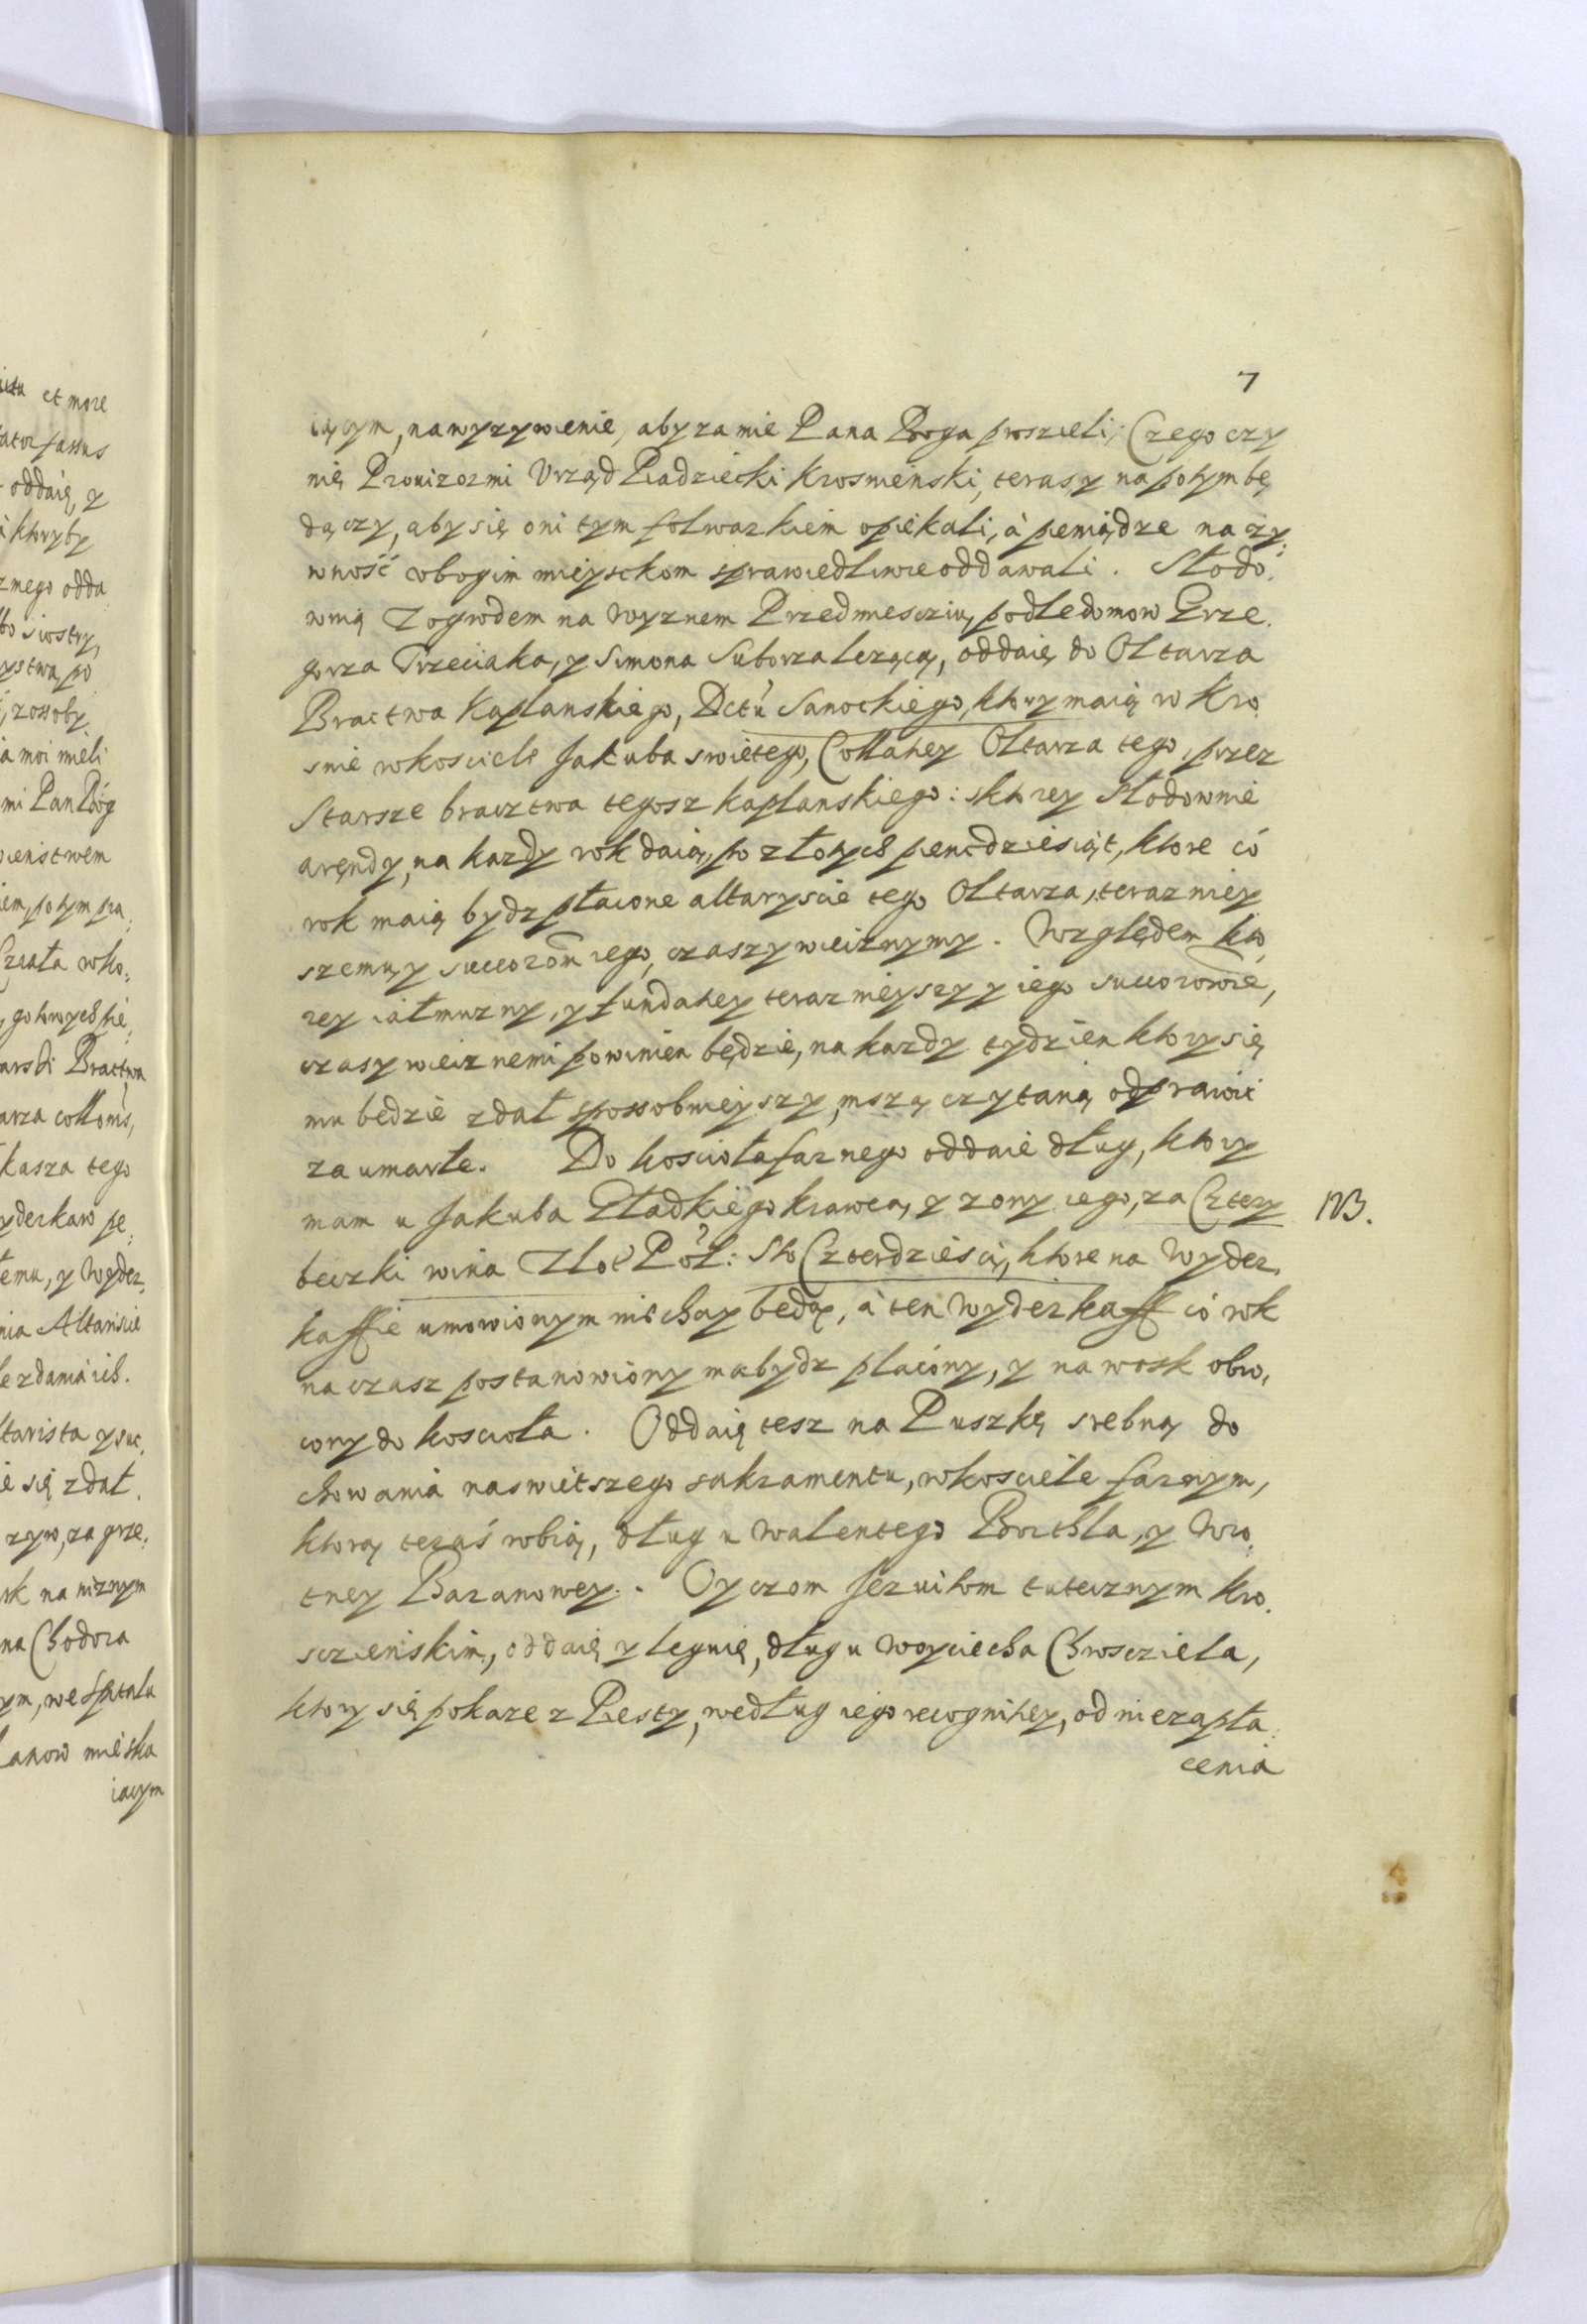 7
iącym, na wyzywienie, aby za mie Pana Boga proszieli, Czego czy
nię Prouizormi Vrząd Radziecki Krosmienski, terasy na potym bę
dączy, aby się oni tym folwarkiem opiekali, à pieniądze na zy:
wność vbogim mieysckom sprawiedliwie oddawali. Słodo:
wnią z ogrodem na Wyznem Przedmiescziu, podle domow Grze.
gorza Trzeciaka, y Simona Suborza lezącą, oddaię do Oltarza
Bractwa Kaplanskiego, Dctu Sanockiego, ktory maią w Kro
snie w kosciele Jakuba swietego, Collatiey Oltarza tego, przez
Starsze bracztwa tegosz kaplanskiego: sktorey Słodownie
aręndy, na kazdy rok daią, po złotych piencdziesiąt, ktore có
rok maią bydz płacone altaryscie tego Oltarza, teraz niey
szemu, y succorom iego, czaszy wiecznymy. Względem kto
rey iałmuzny, y fundatiey teraznieyszy y iego succorowie,
czasy wiecznemi powinien będzie, na kazdy tydzien ktory się
mu będzie zdał sposobnieyszy, mszą czytaną odprawić
za umarłe. Do koscioła farnego oddaie dług, ktory
mam u Jakuba Gładkiego krawca, y zony iego, za Cztery
NB.
beczki wina Złot Pol: Sto Czterdziesci, ktore na Wyder,
kaffie umowionym niechay będą, à ten Wyderkaff có rok
na czasz postanowiony ma bydz płacóny, y na wosk obro,
cony do koscioła. Oddaię tesz na Puszkę srebną do
chowania naswietszego sakramentu, w kosciele farnym,
ktorą teraś robią, dług u Walentego Burchla, y Wro
tney Baranowey. Oyczom Jezuitom tutecznym kro.
sczieńskim, oddaię y leguię, dług u Woyciecha Chroscziela,
ktory się pokaze z Resty, według iego recognitiey, od niezapła
cenia